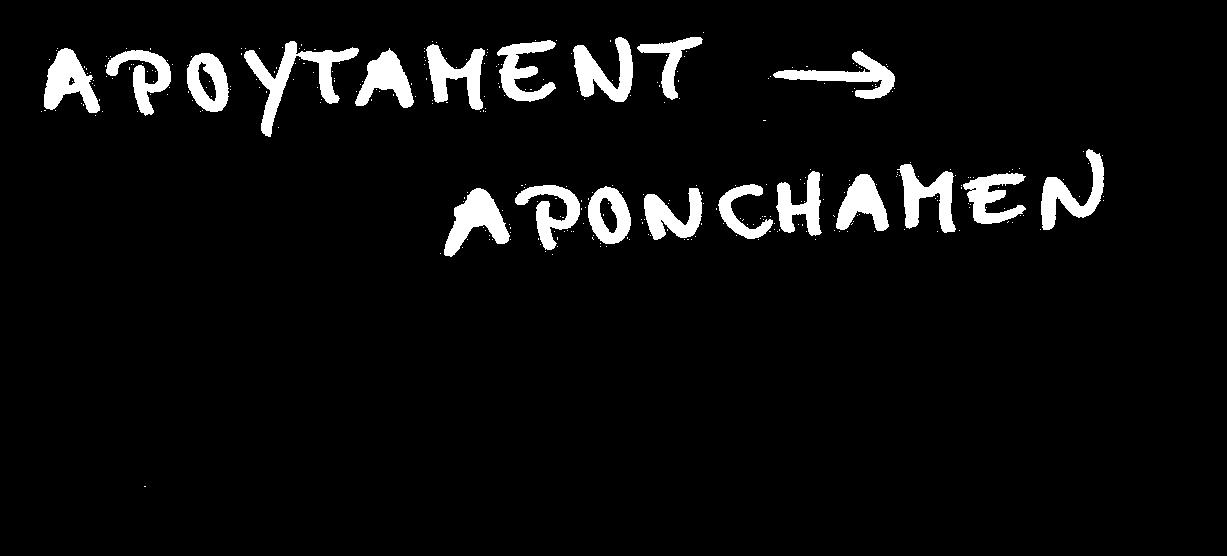 APOYTAMENT →
APONCHAMEN